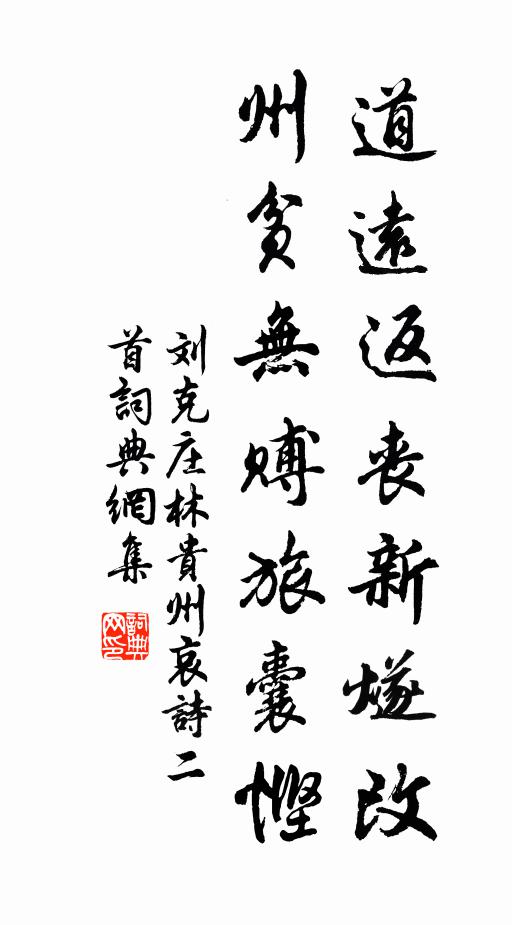 道遠返喪新燧改
州貧無賻旅囊慳
刘克庄林貴州哀詩二
首詞典網集
詞典
网印